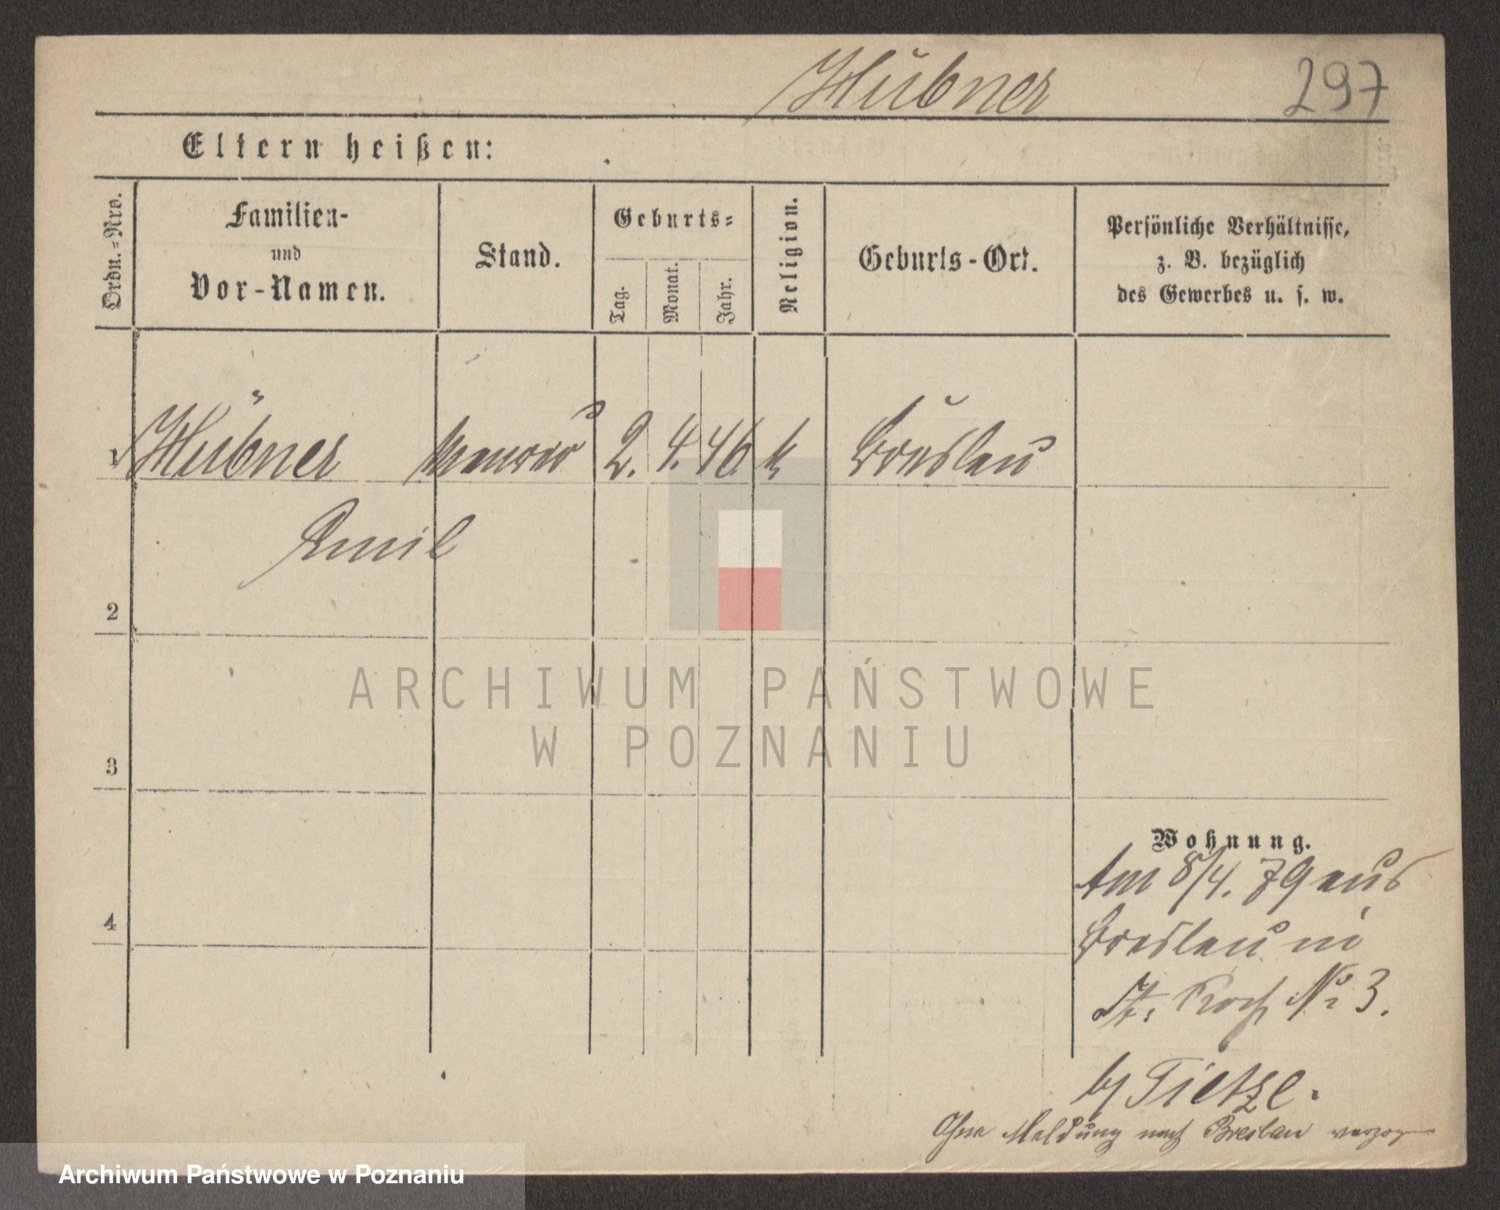 Hübner 297
Eltern heißen:
Ordn.-Nro.
Familien-
und
Vor-Namen.
Stand.
Geburts-
Tag.
Monat.
Jahr.
Religion.
Geburts-Ort.
Persönliche Verhältnisse,
z. B. bezüglich
des Gewerbes u. s. w.
1 Hübner Maurer 2. 4. 46 k Breslau
Emil
2
ARCHIWUM PAŃSTWOWE
W POZNANIU
3
Wohnung.
Am 8/4. 79 aus
4
Breslau in
St. Roch No 3.
by Tietze.
Ohne Meldung nach Breslau verzog
Archiwum Państwowe w Poznaniu